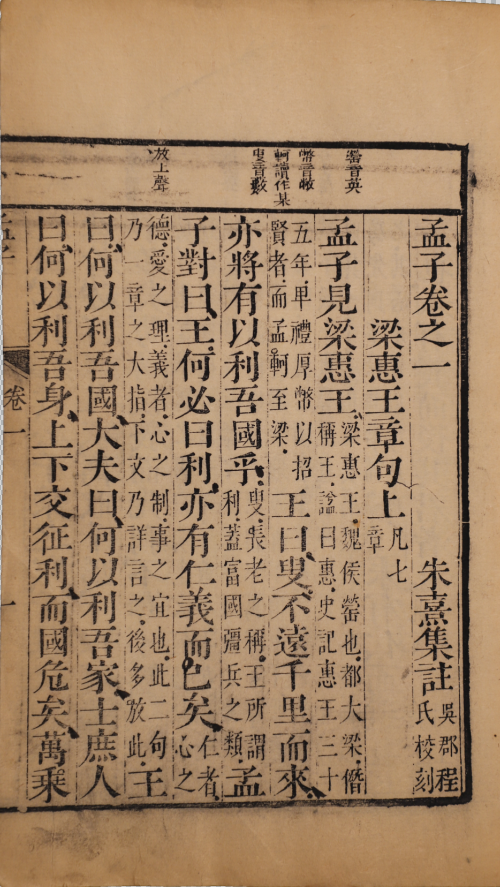 罃音英
幣音敝
軻讀作某
叟音藪
放上聲
孟子卷之一 朱熹集註
吳郡程
氏校刻
梁惠王章句上
凡七
章
孟子見梁惠王、
梁惠王、魏侯罃也、都大梁、僭
稱王、諡曰惠、史記惠王三十
五年、卑禮厚幣以招
賢者、而孟軻至梁、
王曰、叟、不遠千里而來、
亦將有以利吾國乎、
叟、長老之稱、王所謂
利蓋富國彊兵之類
孟
子對曰、王何必曰利、亦有仁義而已矣、
仁者、
心之
德、愛之理、義者、心之制、事之宜也、此二句
乃一章之大指、下文乃詳言之、後多放此、
王
曰、何以利吾國、大夫曰、何以利吾家、士庶人
曰、何以利吾身、上下交征利、而國危矣、萬乘
孟子 卷一 一